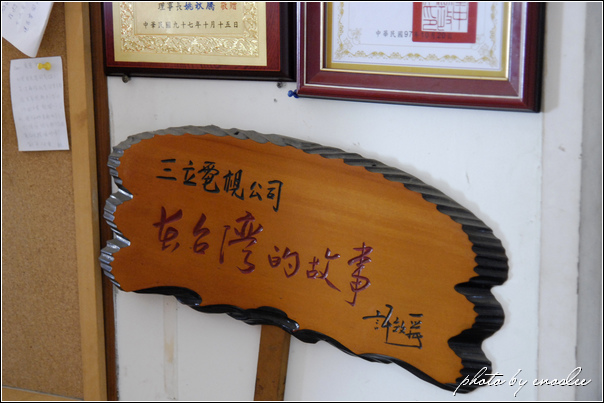 理事長姚啟騰 敬贈
中華民國九十七年十月十五日
中華民國97年
三立電視公司
在台灣的故事
photo by enoslee